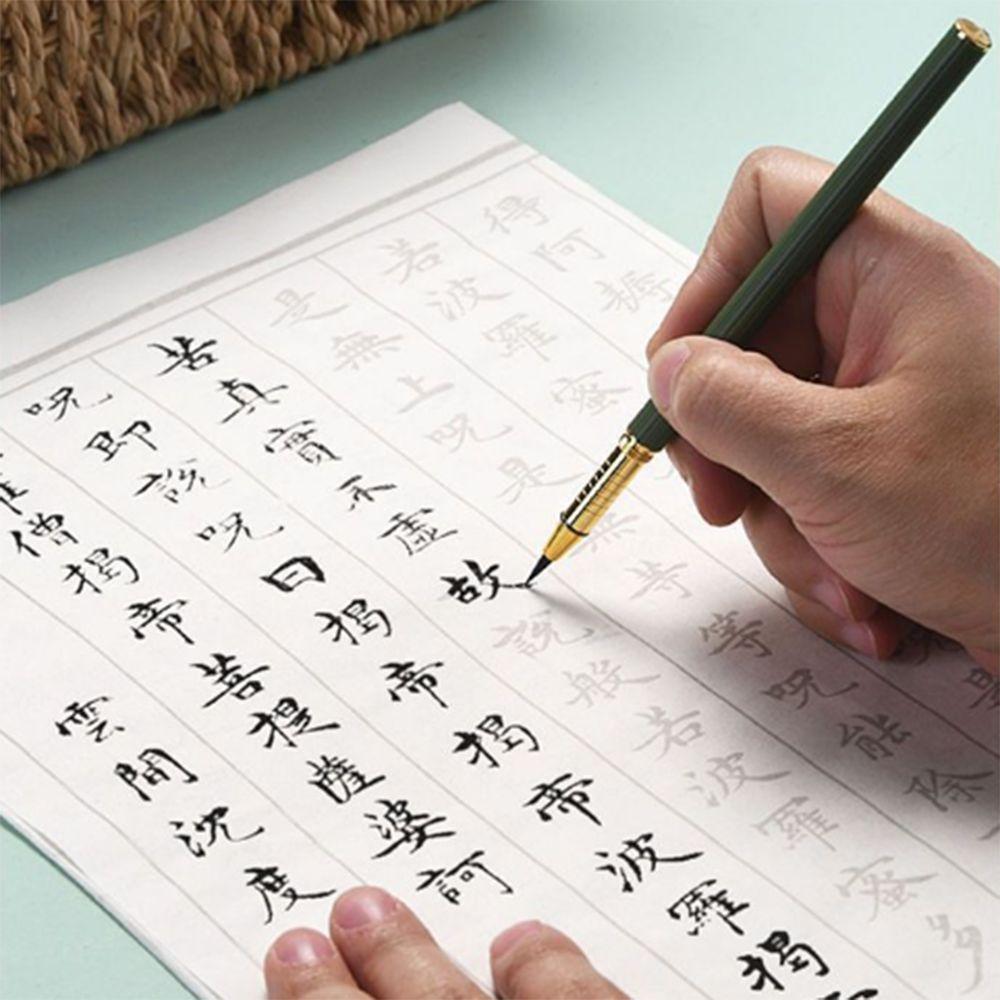 得阿耨
若波羅蜜呪是
是無上呪是無等等呪能除
苦真實不虛故說般若波羅蜜多
呪即說呪曰揭帝揭帝波羅揭
僧揭帝菩提薩婆訶
雲間沈度